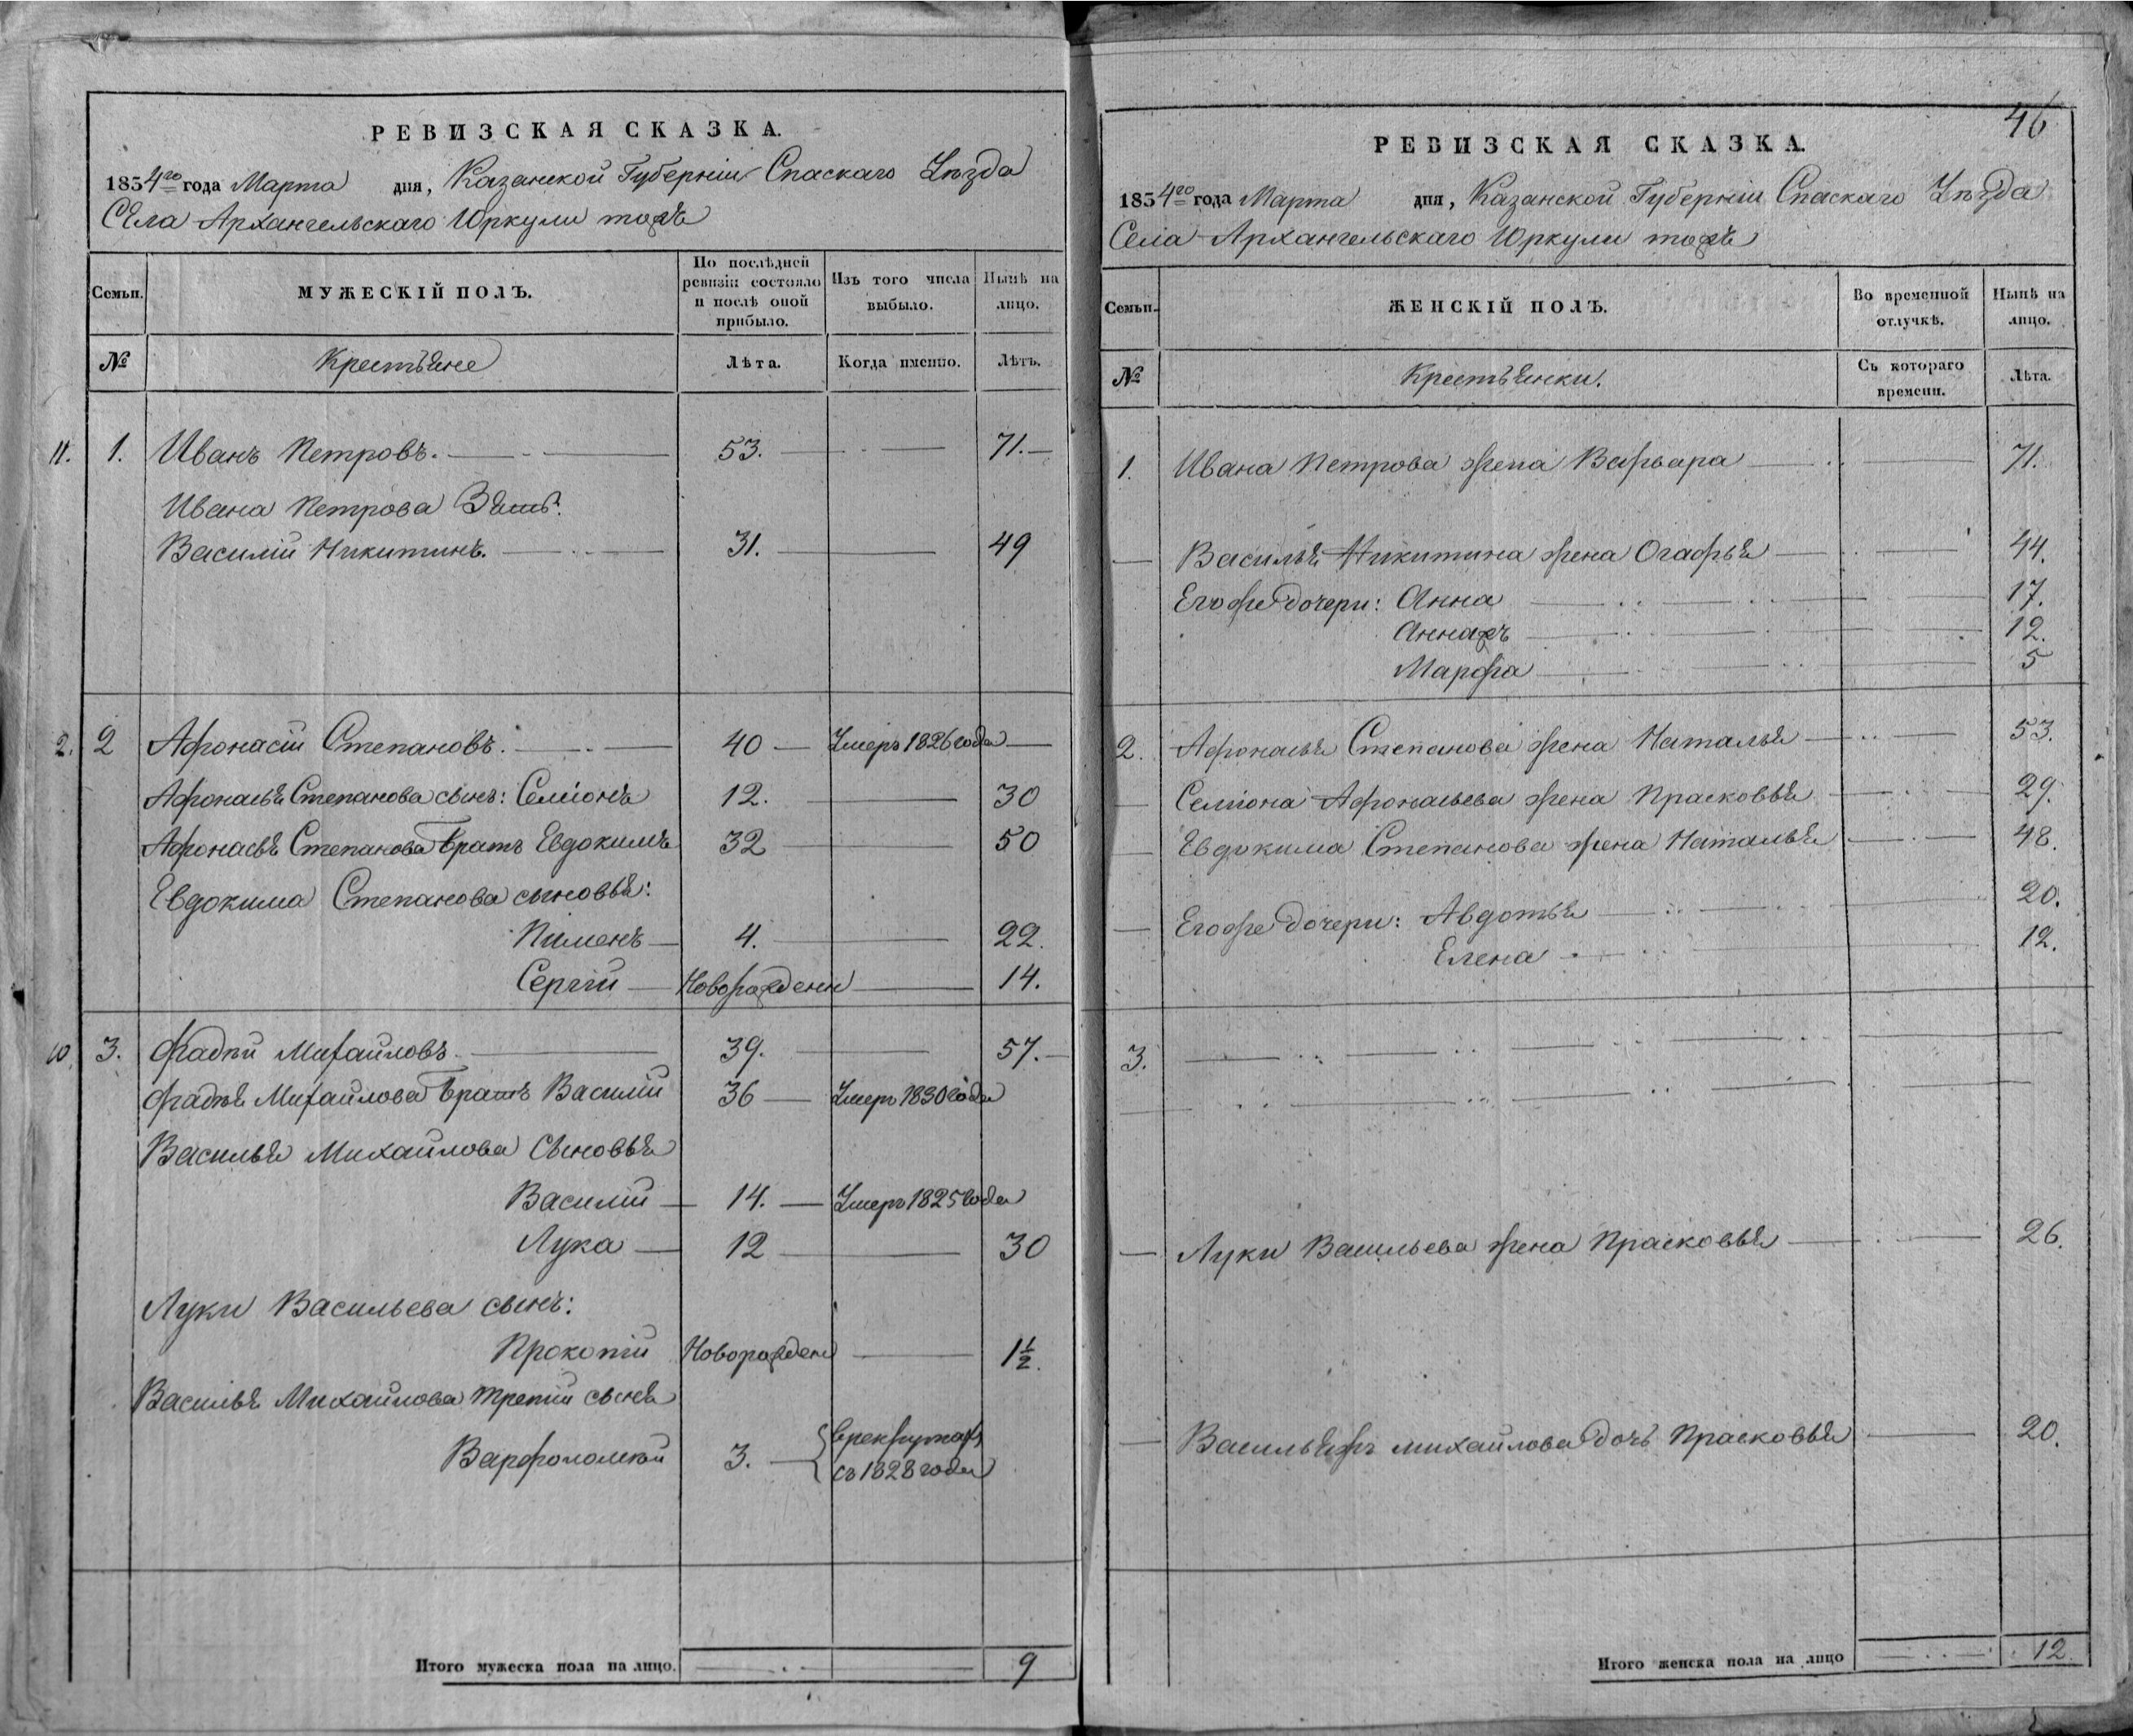 РЕВИЗСКАЯ СКАЗКА.
1834го года Марта дня, Казанской Губерніи Спаскаго Уѣзда
Села Архангельскаго Юркули тожъ
Семьи. МУЖЕСКІЙ ПОЛЪ. По послѣдней ревизіи состояло и послѣ оной прибыло. Изъ того числа выбыло. Нынѣ на лицо.
№ Крестьяне Лѣта. Когда именно. Лѣтъ.
11. 1. Иванъ Петровъ. 53. 71.
Ивана Петрова Зять.
Василій Никитинъ. 31. 49
2. 2 Афонасій Степановъ. 40 Умеръ 1826 года
Афонасья Степанова сынъ: Семіонъ 12. 30
Афонасья Степанова братъ Евдокимъ 32 50
Евдокима Степанова сыновья:
Пименъ 4. 22.
Сергій Новорожденн 14.
10. 3. Фадѣй Михайловъ 39. 57.
Фадѣя Михайлова братъ Василій 36 Умеръ 1830 года
Василья Михайлова Сыновья
Василій 14. Умеръ 1825 года
Лука 12 30
Луки Васильева сынъ:
Прокопій Новорожден 1 1/2.
Василья Михайлова третій сынъ
Варфоломѣй 3. Врекрутахъ
съ 1828 года
Итого мужеска пола на лицо. 9
46
РЕВИЗСКАЯ СКАЗКА.
1834го года Марта дня, Казанской Губерніи Спаскаго Уѣзда
Села Архангельскаго Юркули тожъ
Семьи. ЖЕНСКІЙ ПОЛЪ. Во временной отлучкѣ. Нынѣ на лицо.
№ Крестьянки. Съ котораго времени. Лѣта.
1. Ивана Петрова жена Варвара 71.
Василья Никитина жена Огафья 44.
Егоже дочери: Анна 17.
Аннажъ 12.
Марфа 5
2. Афонасья Степанова жена Наталья 53.
Семіона Афонасьева жена Прасковья 29.
Евдокима Степанова жена Наталья 48.
Егоже дочери: Авдотья 20.
Елена 12.
3.
Луки Васильева жена Прасковья 26.
Васильяжъ михайлова дочь Прасковья 20.
Итого женска пола на лицо 12.